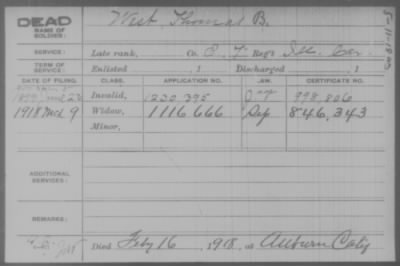 DEAD
NAME OF SOLDIER: West, Thomas B.
SERVICE: Late rank, Co. E, 7 Reg't Ill. Cav.
TERM OF SERVICE: Enlisted , 1 Discharged , 1
DATE OF FILING. CLASS. APPLICATION NO. LAW. CERTIFICATE NO.
Invalid, 1230 395 998,806
1918 Mch 9 Widow, 1116 666 846,343
Minor,
ADDITIONAL SERVICES:
REMARKS:
Died Feby 16, 1918, at Auburn Calif